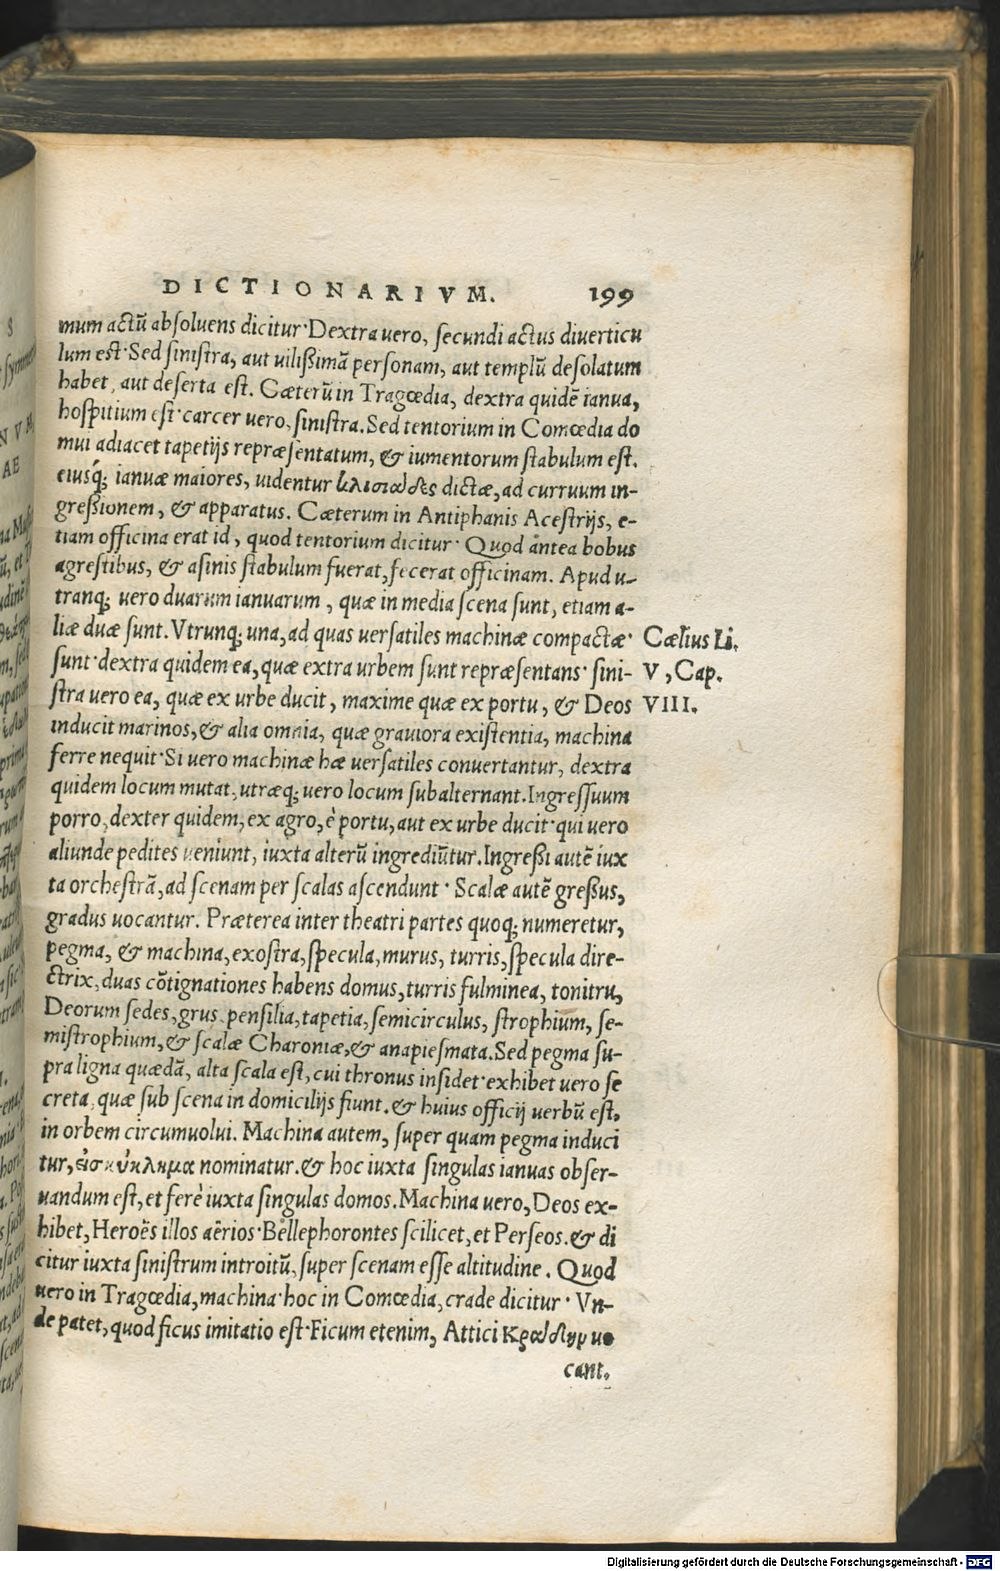 DICTIONARIVM. 199
mum actū absoluens dicitur·Dextra uero, secundi actus diuerticu
lum est·Sed sinistra, aut uilißimā personam, aut templū desolatum
habet, aut deserta est. Cæterū in Tragœdia, dextra quidē ianua,
hospitium est·carcer uero, sinistra.Sed tentorium in Comœdia do
mui adiacet tapetijs repræsentatum, & iumentorum stabulum est.
eiusq́; ianuæ maiores, uidentur κλισιάδες dictæ, ad curruum in-
greßionem, & apparatus. Cæterum in Antiphanis Acestrijs, e-
tiam officina erat id, quod tentorium dicitur· Quod antea bobus
agrestibus, & asinis stabulum fuerat, fecerat officinam. Apud u-
tranq; uero duarum ianuarum, quæ in media scena sunt, etiam a-
liæ duæ sunt.Vtrunq; una, ad quas uersatiles machinæ compactæ· Cælius Li.
sunt·dextra quidem ea, quæ extra urbem sunt repræsentans· sini- V, Cap.
stra uero ea, quæ ex urbe ducit, maxime quæ ex portu, & Deos VIII.
inducit marinos, & alia omnia, quæ grauiora existentia, machina
ferre nequit·Si uero machinæ hæ uersatiles conuertantur, dextra
quidem locum mutat, utræq; uero locum subalternant.Ingressuum
porro, dexter quidem, ex agro, è portu, aut ex urbe ducit·qui uero
aliunde pedites ueniunt, iuxta alterū ingrediūtur.Ingreßi autē iux
ta orchestrā, ad scenam per scalas ascendunt· Scalæ autē greßus,
gradus uocantur. Præterea inter theatri partes quoq; numeretur,
pegma, & machina, exostra, specula, murus, turris, specula dire-
ctrix, duas cōtignationes habens domus, turris fulminea, tonitru,
Deorum sedes, grus, pensilia, tapetia, semicirculus, strophium, se-
mistrophium, & scalæ Charoniæ, & anapiesmata.Sed pegma su-
pra ligna quædā, alta scala est, cui thronus insidet·exhibet uero se
creta, quæ sub scena in domicilijs fiunt. & huius officij uerbū est,
in orbem circumuolui. Machina autem, super quam pegma induci
tur, εἰσκύκλημα nominatur. & hoc iuxta singulas ianuas obser-
uandum est, et ferè iuxta singulas domos.Machina uero, Deos ex-
hibet, Heroës illos aërios·Bellephorontes scilicet, et Perseos. & di
citur iuxta sinistrum introitū, super scenam esse altitudine. Quod
uero in Tragœdia, machina·hoc in Comœdia, crade dicitur· Vn-
de patet, quod ficus imitatio est·Ficum etenim, Attici Κράδην uo
cant.
Digitalisierung gefördert durch die Deutsche Forschungsgemeinschaft - DFG